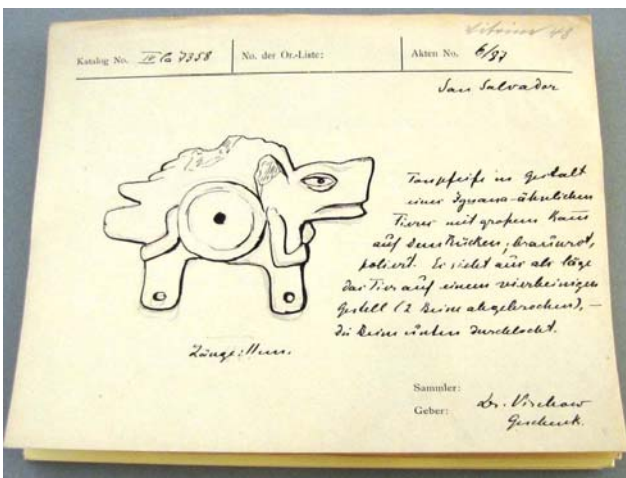 Vitrine 48
Katalog No. IV Ca 7358
No. der Or.-Liste:
Akten No. 6/87
San Salvador
Tonpfeife in Gestalt
eines Iguana-ähnlichen
Tieres mit großem Kam̅
auf dem Rücken; braunrot,
poliert. Es sieht aus als läge
das Tier auf einem vierbeinigen
Gestell (2 Beine abgebrochen), –
die Beine unten durchlocht.
Länge: 11 cm.
Sammler:
Geber: Dr. Virchow
Geschenk.